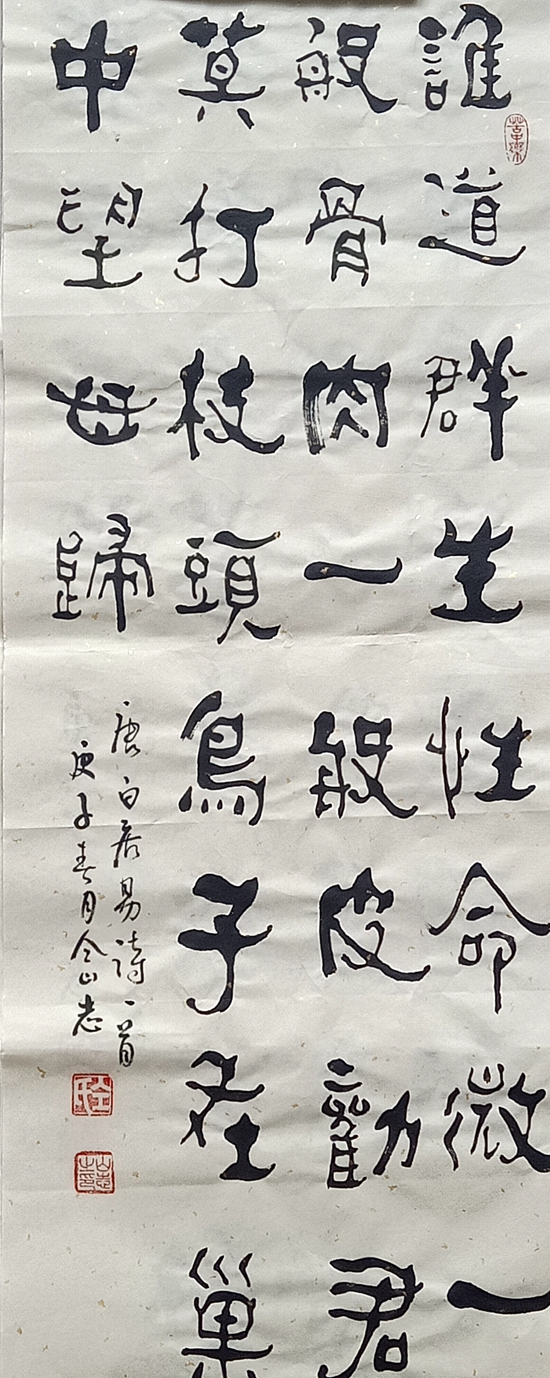 誰道群生性命微一
般骨肉一般皮勸君
莫打枝頭鳥子在巢
中望母歸
唐白居易詩一首
庚子春月仝山志